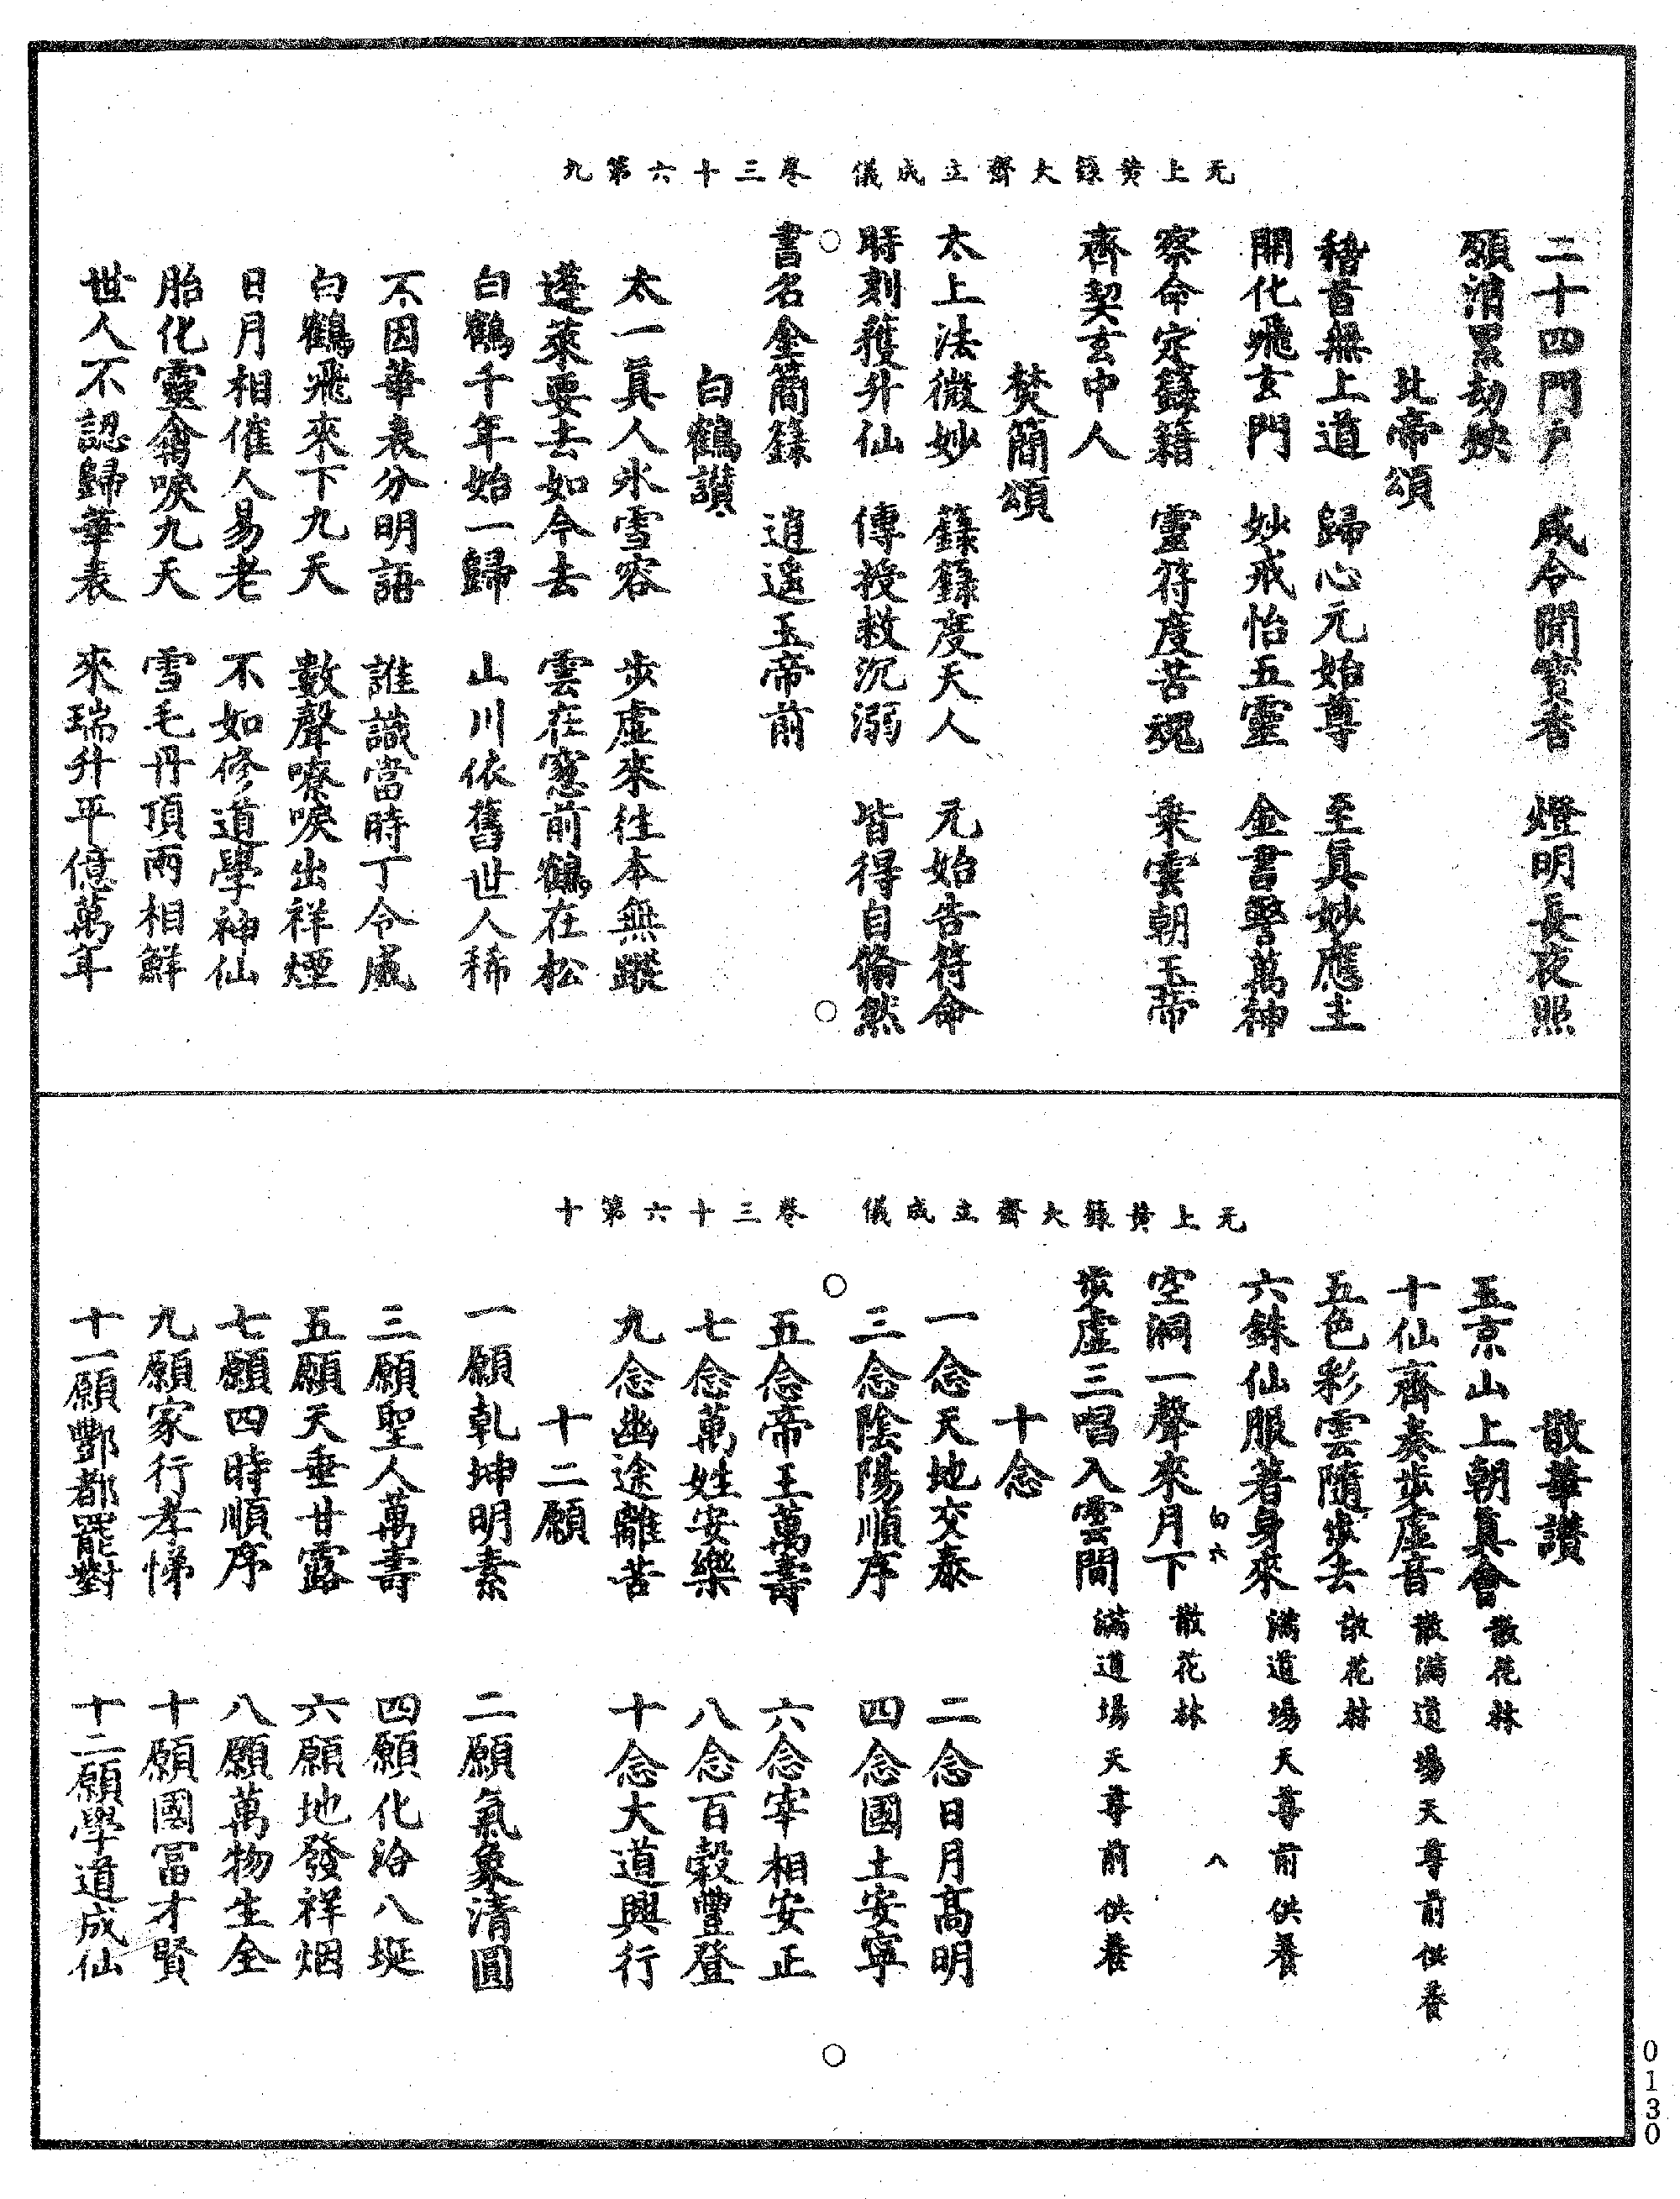 无上黃籙大齋立成儀 卷三十六第九
二十四門戶 咸令聞寶香 燈明長夜照
願消累劫殃
北帝頌
稽首無上道 歸心元始尊 至真妙應主
開化飛玄門 妙戒怡五靈 金書譽萬神
察命定錄籍 靈符度苦魂 乘雲朝玉帝
齊契玄中人
焚簡頌
太上法微妙 籙錄度天人 元始告符命
時刻獲升仙 傳授救沉溺 皆得自翛然
書名金簡籙 逍遙玉帝前
白鶴讚
太一真人氷雪容 步虛來往本無蹤
蓬萊要去如今去 雲在窻前鶴在松
白鶴千年始一歸 山川依舊世人稀
不因華表分明語 誰識當時丁令威
白鶴飛來下九天 數聲嘹唳出祥煙
日月相催人易老 不如修道學神仙
胎化靈禽唳九天 雪毛丹頂兩相鮮
世人不認歸華表 來瑞升平億萬年
无上黃籙大齋立成儀 卷三十六第十
散華讚
玉京山上朝真會 散花林
十仙齊奏步虛音 散滿道場天尊前供養
五色彩雲隨步去 散花林
六銖仙服著身來 滿道場天尊前供養
白六 八
空洞一聲來月下 散花林
步虛三唱入雲間 滿道場天尊前供養
十念
一念天地交泰 二念日月高明
三念陰陽順序 四念國土安寧
五念帝王萬壽 六念宰相安正
七念萬姓安樂 八念百穀豐登
九念幽途離苦 十念大道興行
十二願
一願乾坤明素 二願氣象清圓
三願聖人萬壽 四願化洽八埏
五願天垂甘露 六願地發祥烟
七願四時順序 八願萬物生全
九願家行孝悌 十願國富才賢
十一願酆都罷對 十二願學道成仙
0130